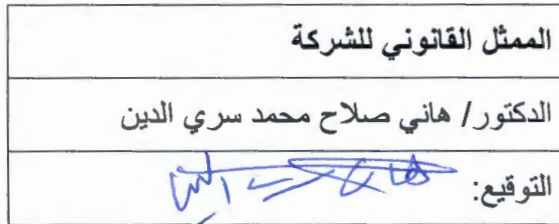 الممثل القانوني للشركة
الدكتور/ هاني صلاح محمد سري الدين
التوقيع: